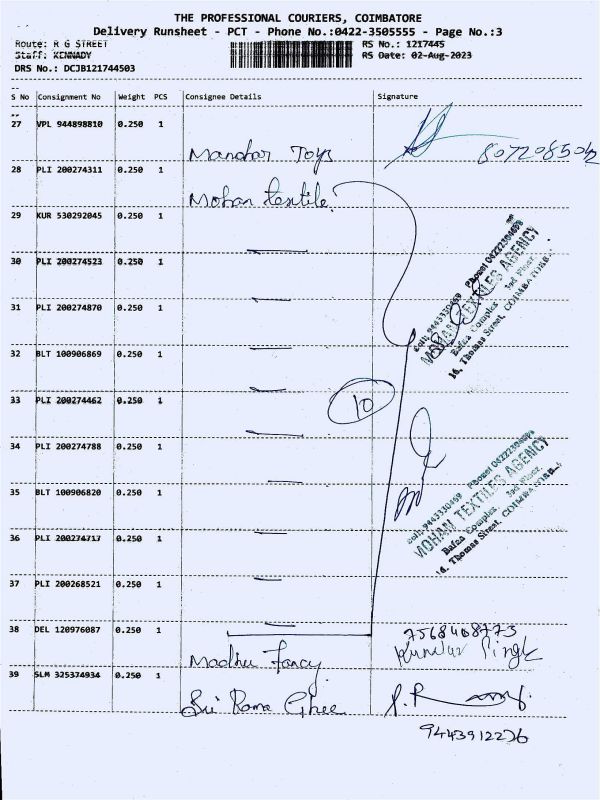 THE PROFESSIONAL COURIERS, COIMBATORE
Delivery Runsheet - PCT - Phone No.:0422-3505555 - Page No.:3
Route: R G STREET
Staff: KENNADY
DRS No.: DCJB121744503
RS No.: 1217445
RS Date: 02-Aug-2023
S No Consignment No Weight PCS Consignee Details Signature
27 VPL 944898810 0.250 1
Manohar Toys
8072085042
28 PLI 200274311 0.250 1
Mohan textile
29 KUR 530292045 0.250 1
30 PLI 200274523 0.250 1
31 PLI 200274870 0.250 1
32 BLT 100906869 0.250 1
33 PLI 200274462 0.250 1
10
34 PLI 200274788 0.250 1
35 BLT 100906820 0.250 1
36 PLI 200274717 0.250 1
37 PLI 200268521 0.250 1
38 DEL 120976087 0.250 1
Madhu Fancy
7568408773
39 SLM 325374934 0.250 1
Sri Rama Ghee
9443912226
Cell: 9443330469 Phone: 04222304698
MOHAN TEXTILES AGENCY
Bafna Complex, 3rd Floor,
16, Thomas Street, COIMBATORE
Cell: 9443330469 Phone: 04222304698
MOHAN TEXTILES AGENCY
Bafna Complex, 3rd Floor,
16, Thomas Street, COIMBATORE